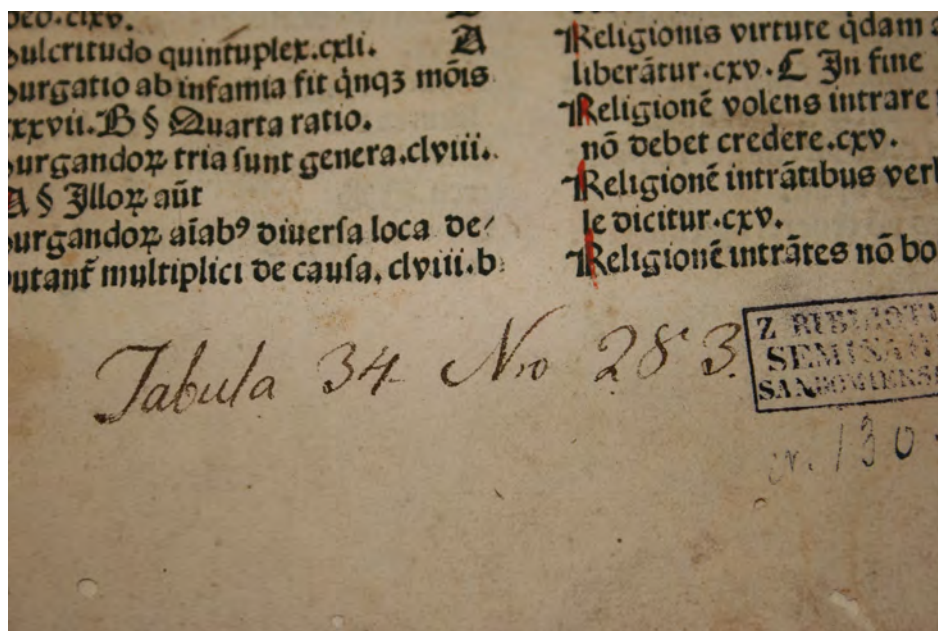 pulcritudo quintuplex.cxli. A
purgatio ab infamia fit q̇nqꝫ mōis
xxvii.B § Quarta ratio.
purgandoꝝ tria sunt genera.clviii.
A § Illoꝝ aūt
purgandoꝝ aīabꝰ diuersa loca de⸗
putant᷑ multiplici de causa. clviii.b
Religionis virtute q̇dam a
liberātur.cxv.C In fine
Religionē volens intrare
nō debet credere.cxv.
Religionē intrātibus verb
le dicitur.cxv.
Religionē intrātes nō bo
Tabula 34 Nro 283.
Z BIBLIOT
SEMINAR
SANDOMIERS
nr. 130